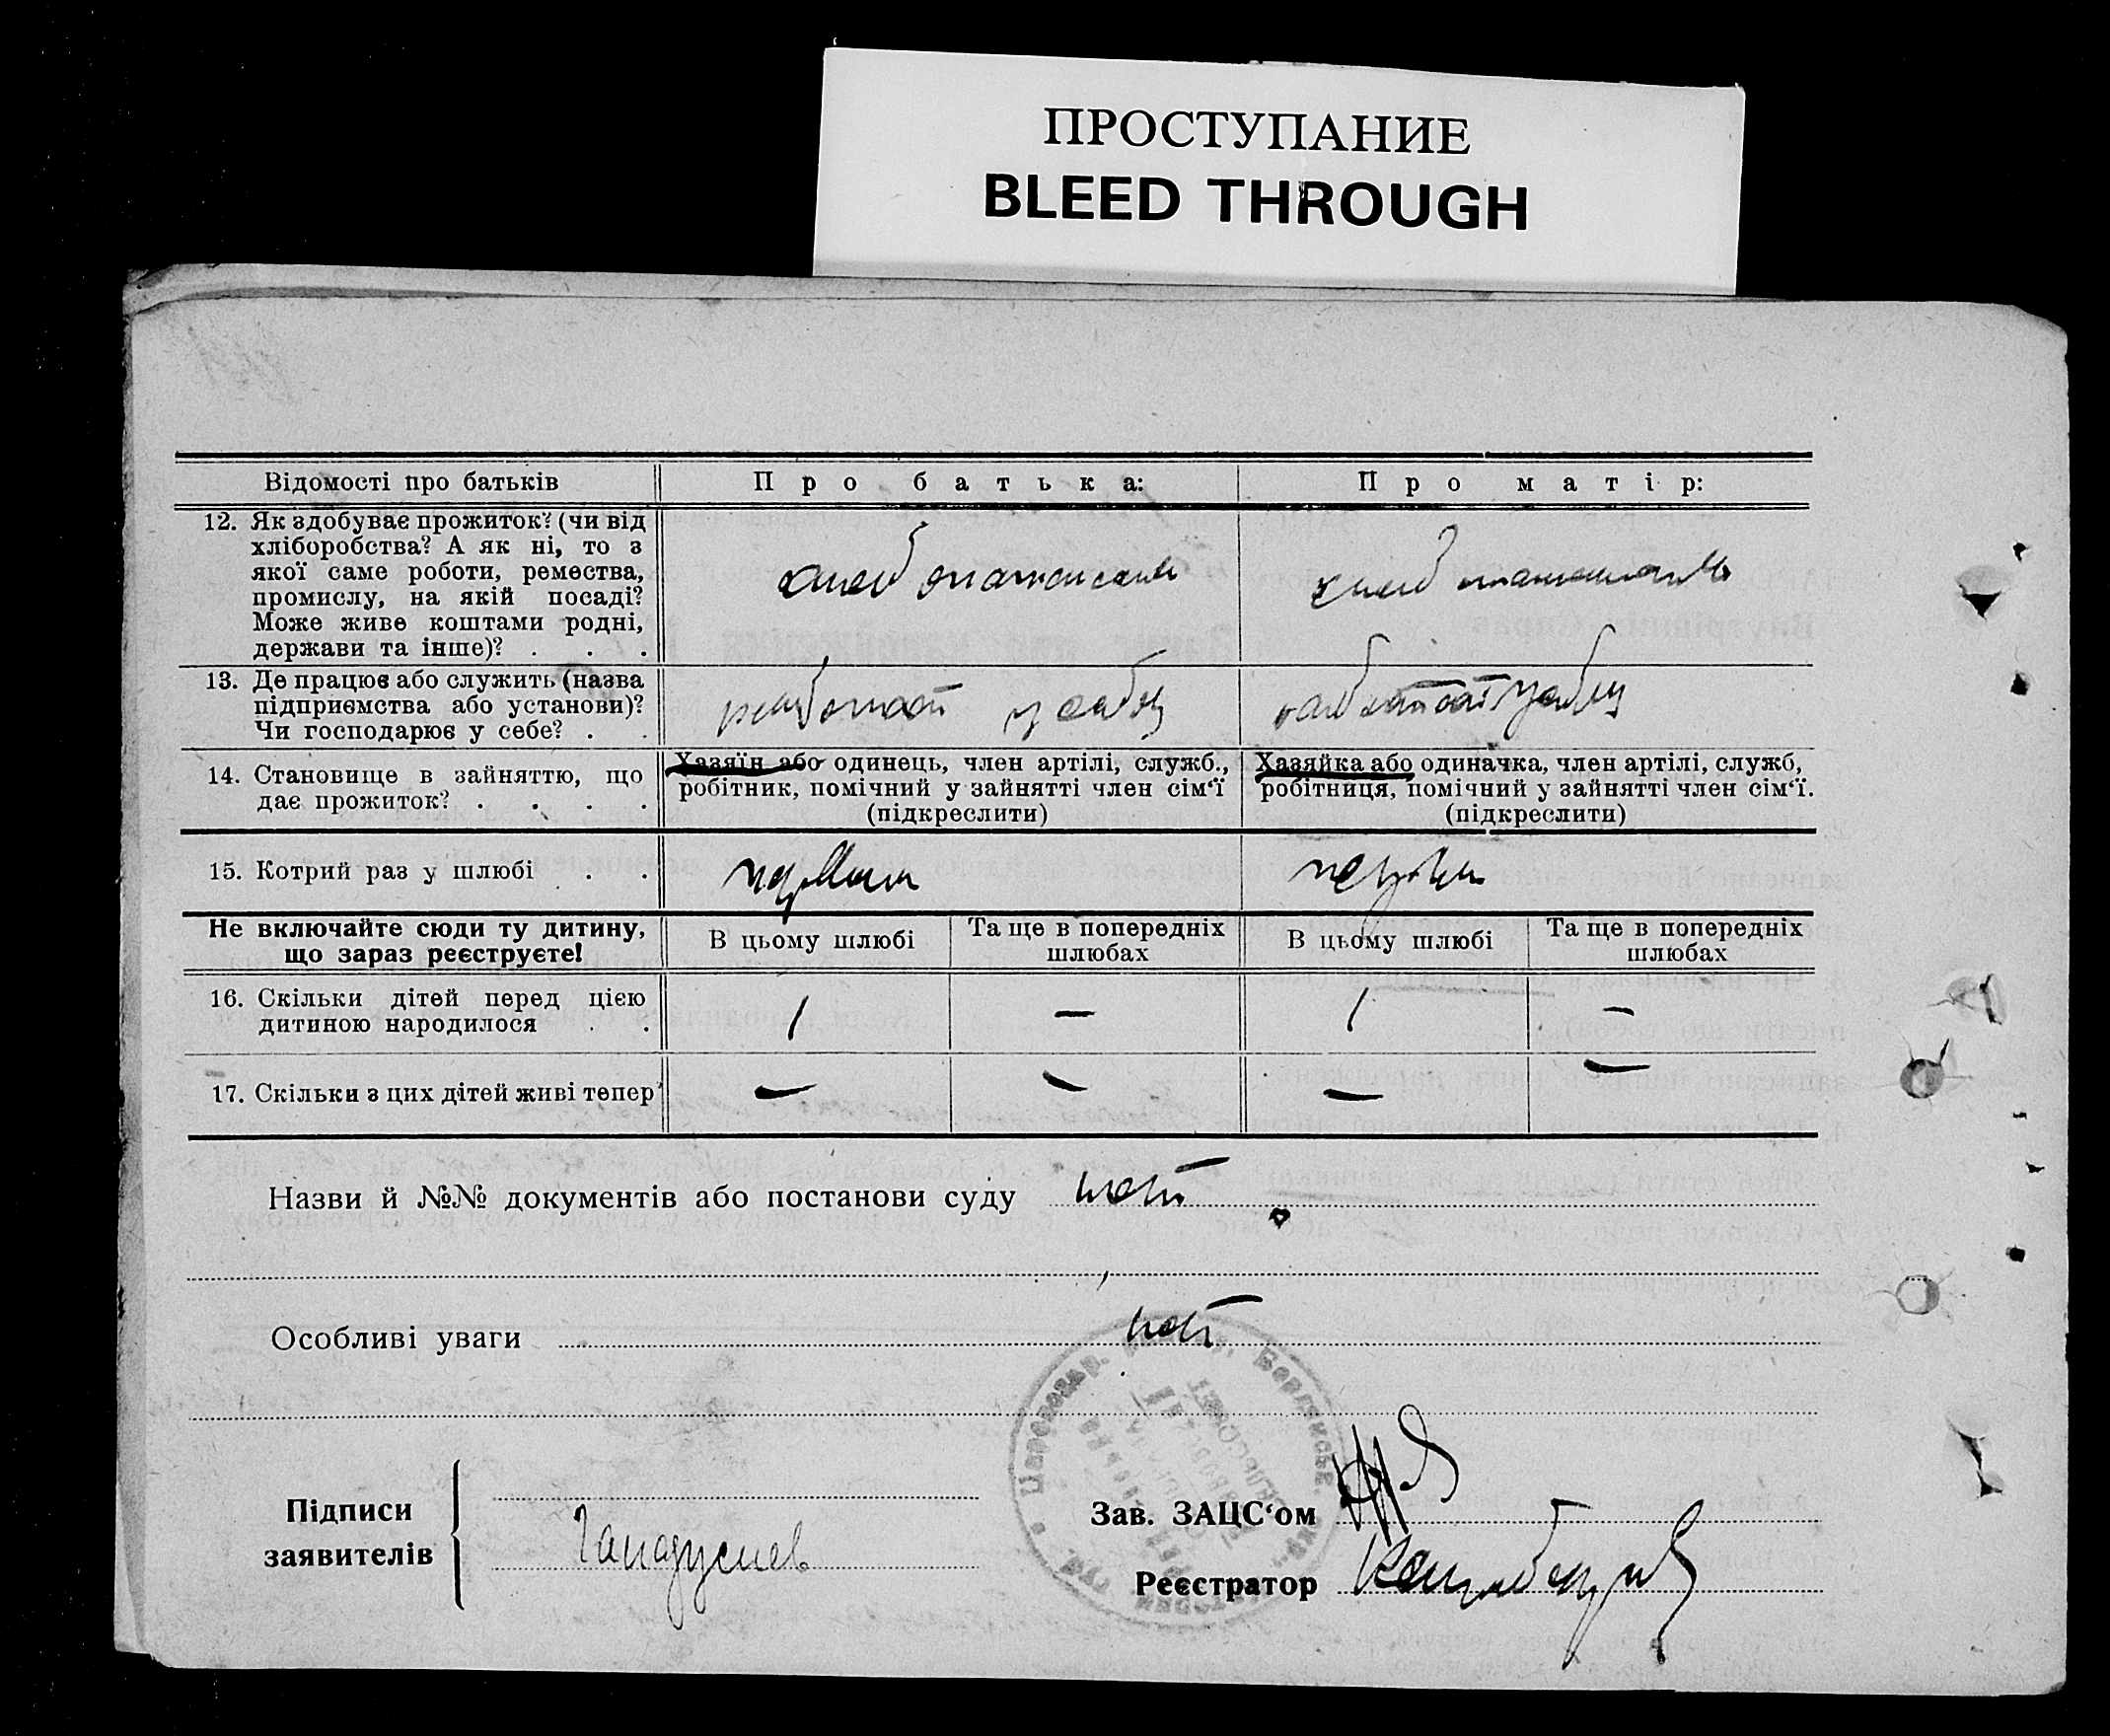 ПРОСТУПАНИЕ
BLEED THROUGH
Відомості про батьків
Про батька:
Про матір:
12. Як здобуває прожиток? (чи від
хліборобства? А як ні, то з
якої саме роботи, ремества,
промислу, на якій посаді?
Може живе коштами родні,
держави та інше)? . . .
13. Де працює або служить (назва
підприємства або установи)?
Чи господарює у себе? . .
работает у себя
работает у себя
14. Становище в зайняттю, що
дає прожиток? . . . .
Хазяїн або одинець, член артілі, служб.,
робітник, помічний у зайнятті член сім‘ї
(підкреслити)
Хазяйка або одиначка, член артілі, служб,
робітниця, помічний у зайнятті член сім‘ї.
(підкреслити)
15. Котрий раз у шлюбі . .
Не включайте сюди ту дитину,
що зараз реєструєте!
В цьому шлюбі
Та ще в попередніх
шлюбах
В цьому шлюбі
Та ще в попередніх
шлюбах
16. Скільки дітей перед цією
дитиною народилося . .
1 — 1 —
17. Скільки з цих дітей живі тепер
— — — —
Назви й №№ документів або постанови суду нет
Особливі уваги нет
Підписи
заявителів
Зав. ЗАЦС‘ом
Реєстратор